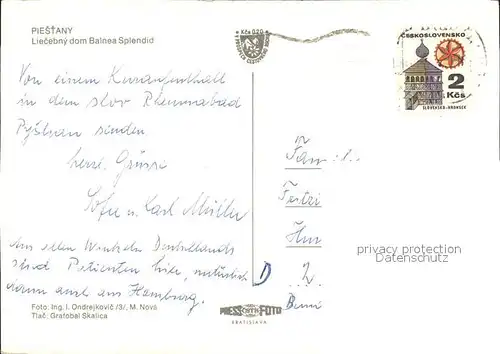 PIEŠŤANY
Liečebný dom Balnea Splendid
Kčs 0,20
ČESKOSLOVENSKO
2
Kčs
SLOVENSKO-HRONSEK
Von einem Kuraufenthalt
in dem slow. Rheumabad
Pyštian senden
herzl. Grüsse
Sofie u. Karl Müller
Aus allen Winkeln Deutschlands
sind Patienten hier, natürlich
dann auch aus Hamburg.
Fam.
D
privacy protection
ansichtskartenhandel.de
PRESS ČSTK FOTO
BRATISLAVA
Foto: Ing. I. Ondrejkovič /3/, M. Nová
Tlač: Grafobel Skalica